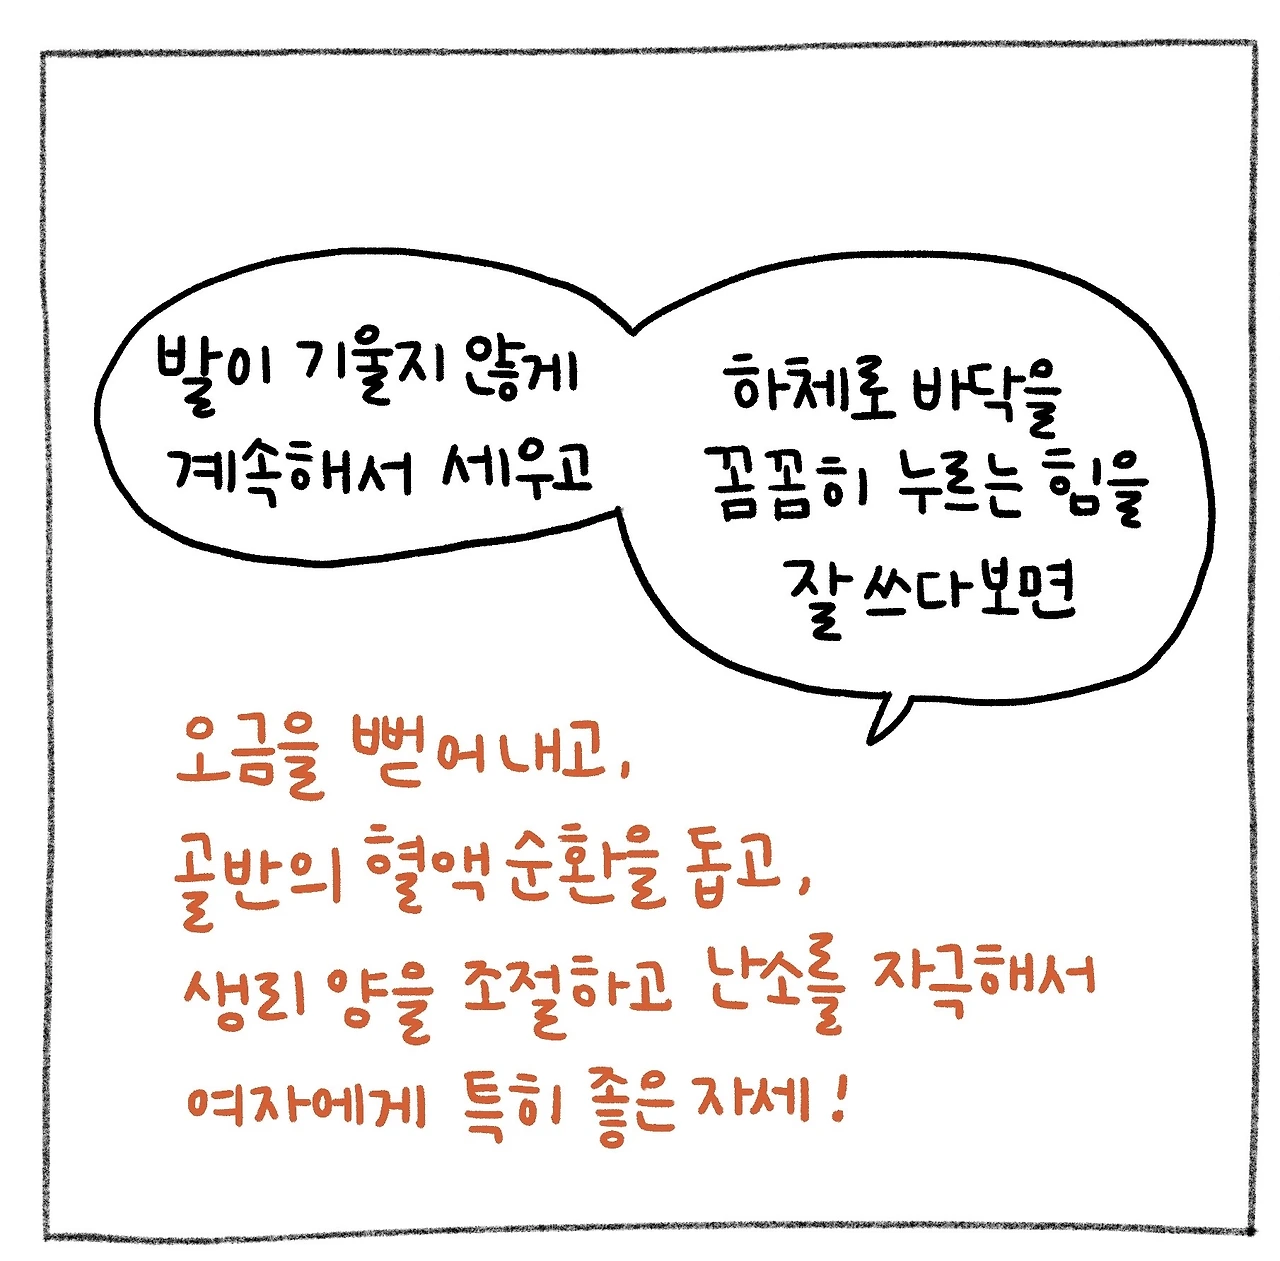 발이 기울지 않게
계속해서 세우고
하체로 바닥을
꼼꼼히 누르는 힘을
잘 쓰다보면
오금을 뻗어내고,
골반의 혈액순환을 돕고,
생리 양을 조절하고 난소를 자극해서
여자에게 특히 좋은 자세!